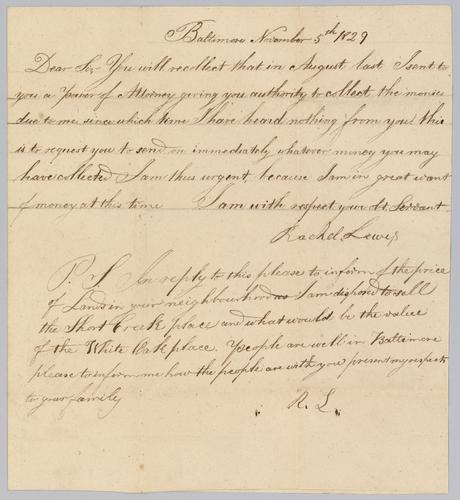 Baltimore November 5th 1829
Dear Sir You will recollect that in August last I sent to
you a Power of Attorney giving you authority to collect the monies
due to me since which time I have heard nothing from you this
is to request you to send on immediately whatever money you may
have collected I am thus urgent, because I am in great want
of money at this time I am with respect your obt. Servant
Rachel Lewis
P.S In reply to this please to inform of the price
of Lands in your neighbourhood as I am disposed to sell
the Short Creek place and what would be the value
of the White Oak place. people are well in Baltimore
please to inform me how the people are with you present my respects
to your family
R. L.